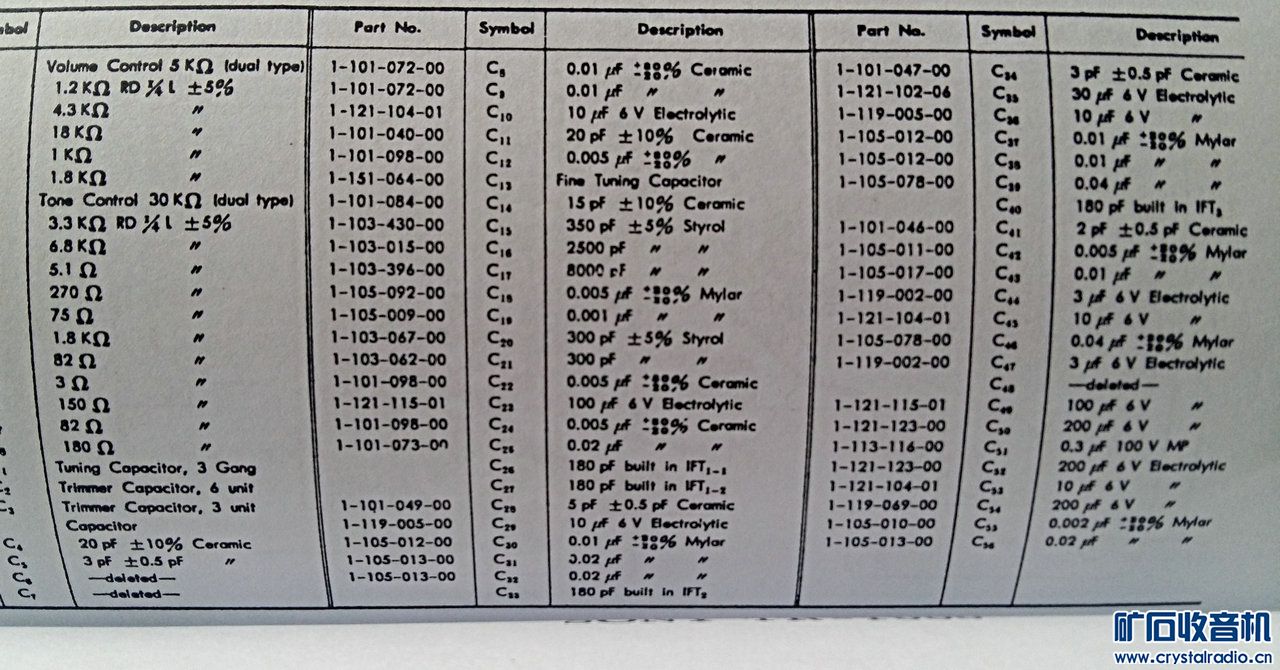 bol Description Part No. Symbol Description Part No. Symbol Description
Volume Control 5 KΩ (dual type) 1-101-072-00 C₈ 0.01 μF +80 −20% Ceramic 1-101-047-00 C₃₄ 3 pF ±0.5 pF Ceramic
1.2 KΩ RD ¼ L ±5% 1-101-072-00 C₉ 0.01 μF 〃 〃 1-121-102-06 C₃₅ 30 μF 6 V Electrolytic
4.3 KΩ 〃 1-121-104-01 C₁₀ 10 μF 6 V Electrolytic 1-119-005-00 C₃₆ 10 μF 6 V 〃
18 KΩ 〃 1-101-040-00 C₁₁ 20 pF ±10% Ceramic 1-105-012-00 C₃₇ 0.01 μF +80 −20% Mylar
1 KΩ 〃 1-101-098-00 C₁₂ 0.005 μF +80 −20% 〃 1-105-012-00 C₃₈ 0.01 μF 〃 〃
1.8 KΩ 〃 1-151-064-00 C₁₃ Fine Tuning Capacitor 1-105-078-00 C₃₉ 0.04 μF 〃 〃
Tone Control 30 KΩ (dual type) 1-101-084-00 C₁₄ 15 pF ±10% Ceramic C₄₀ 180 pF built in IFT₃
3.3 KΩ RD ¼ L ±5% 1-103-430-00 C₁₅ 350 pF ±5% Styrol 1-101-046-00 C₄₁ 2 pF ±0.5 pF Ceramic
6.8 KΩ 〃 1-103-015-00 C₁₆ 2500 pF 〃 〃 1-105-011-00 C₄₂ 0.005 μF +80 −20% Mylar
5.1 Ω 〃 1-103-396-00 C₁₇ 8000 pF 〃 〃 1-105-017-00 C₄₃ 0.01 μF 〃 〃
270 Ω 〃 1-105-092-00 C₁₈ 0.005 μF +80 −20% Mylar 1-119-002-00 C₄₄ 3 μF 6 V Electrolytic
75 Ω 〃 1-105-009-00 C₁₉ 0.001 μF 〃 〃 1-121-104-01 C₄₅ 10 μF 6 V 〃
1.8 KΩ 〃 1-103-067-00 C₂₀ 300 pF ±5% Styrol 1-105-078-00 C₄₆ 0.04 μF +80 −20% Mylar
82 Ω 〃 1-103-062-00 C₂₁ 300 pF 〃 〃 1-119-002-00 C₄₇ 3 μF 6 V Electrolytic
3 Ω 〃 1-101-098-00 C₂₂ 0.005 μF +80 −20% Ceramic C₄₈ —deleted—
150 Ω 〃 1-121-115-01 C₂₃ 100 μF 6 V Electrolytic 1-121-115-01 C₄₉ 100 μF 6 V 〃
82 Ω 〃 1-101-098-00 C₂₄ 0.005 μF +80 −20% Ceramic 1-121-123-00 C₅₀ 200 μF 6 V 〃
180 Ω 〃 1-101-073-00 C₂₅ 0.02 μF 〃 〃 1-113-116-00 C₅₁ 0.3 μF 100 V MP
Tuning Capacitor, 3 Gang C₂₆ 180 pF built in IFT₁₋₁ 1-121-123-00 C₅₂ 200 μF 6 V Electrolytic
C₂ Trimmer Capacitor, 6 unit C₂₇ 180 pF built in IFT₁₋₂ 1-121-104-01 C₅₃ 10 μF 6 V 〃
C₃ Trimmer Capacitor, 3 unit 1-101-049-00 C₂₈ 5 pF ±0.5 pF Ceramic 1-119-069-00 C₅₄ 200 μF 6 V 〃
Capacitor 1-119-005-00 C₂₉ 10 μF 6 V Electrolytic 1-105-010-00 C₅₅ 0.002 μF +80 −20% Mylar
C₄ 20 pF ±10% Ceramic 1-105-012-00 C₃₀ 0.01 μF +80 −20% Mylar 1-105-013-00 C₅₆ 0.02 μF 〃 〃
C₅ 3 pF ±0.5 pF 〃 1-105-013-00 C₃₁ 0.02 μF 〃 〃
C₆ —deleted— 1-105-013-00 C₃₂ 0.02 μF 〃 〃
C₇ —deleted— C₃₃ 180 pF built in IFT₂
矿石收音机
www.crystalradio.cn